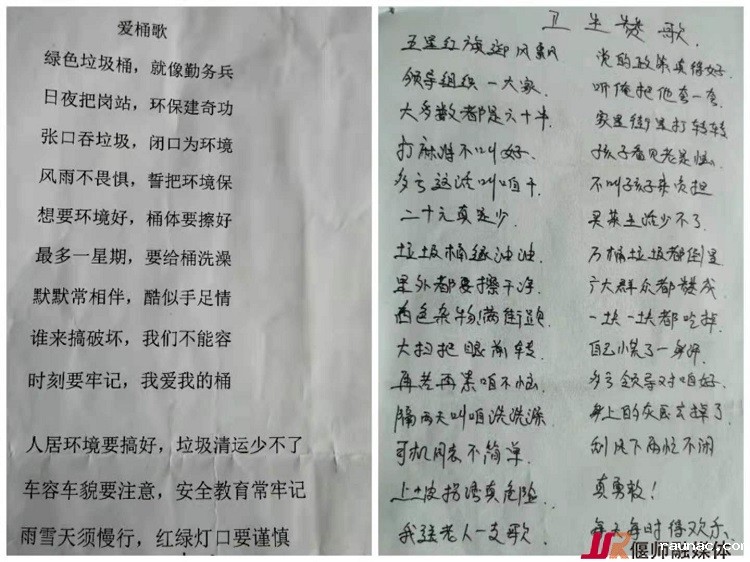 爱桶歌
绿色垃圾桶，就像勤务兵
日夜把岗站，环保建奇功
张口吞垃圾，闭口为环境
风雨不畏惧，誓把环境保
想要环境好，桶体要擦好
最多一星期，要给桶洗澡
默默常相伴，酷似手足情
谁来搞破坏，我们不能容
时刻要牢记，我爱我的桶
人居环境要搞好，垃圾清运少不了
车容车貌要注意，安全教育常牢记
雨雪天须慢行，红绿灯口要谨慎
卫生赞歌
五星红旗迎风飘 党的政策真得好
领导组织一大家 听俺把他夸一夸
大多数都是六十半 家里街里打转转
打麻将不叫好 孩子看见老是恼
多亏这活叫咱干 不叫孩子来负担
二十元真是少 买菜生活少不了
垃圾桶绿油油 万桶垃圾都倒里
里外都要擦干净 广大群众都赞成
白色杂物满街 一块一块都吃掉
大扫把眼前转 自己惊了一身
再苦再累咱不恼 多亏领导对咱好
隔两天叫咱洗洗澡 身上的灰尘去掉了
司机同志不简单 刮风下雨忙不闲
上坡拐弯真危险 真勇敢！
我强老人一支歌 每天每时得欢乐
偃师融媒体
raunac.com